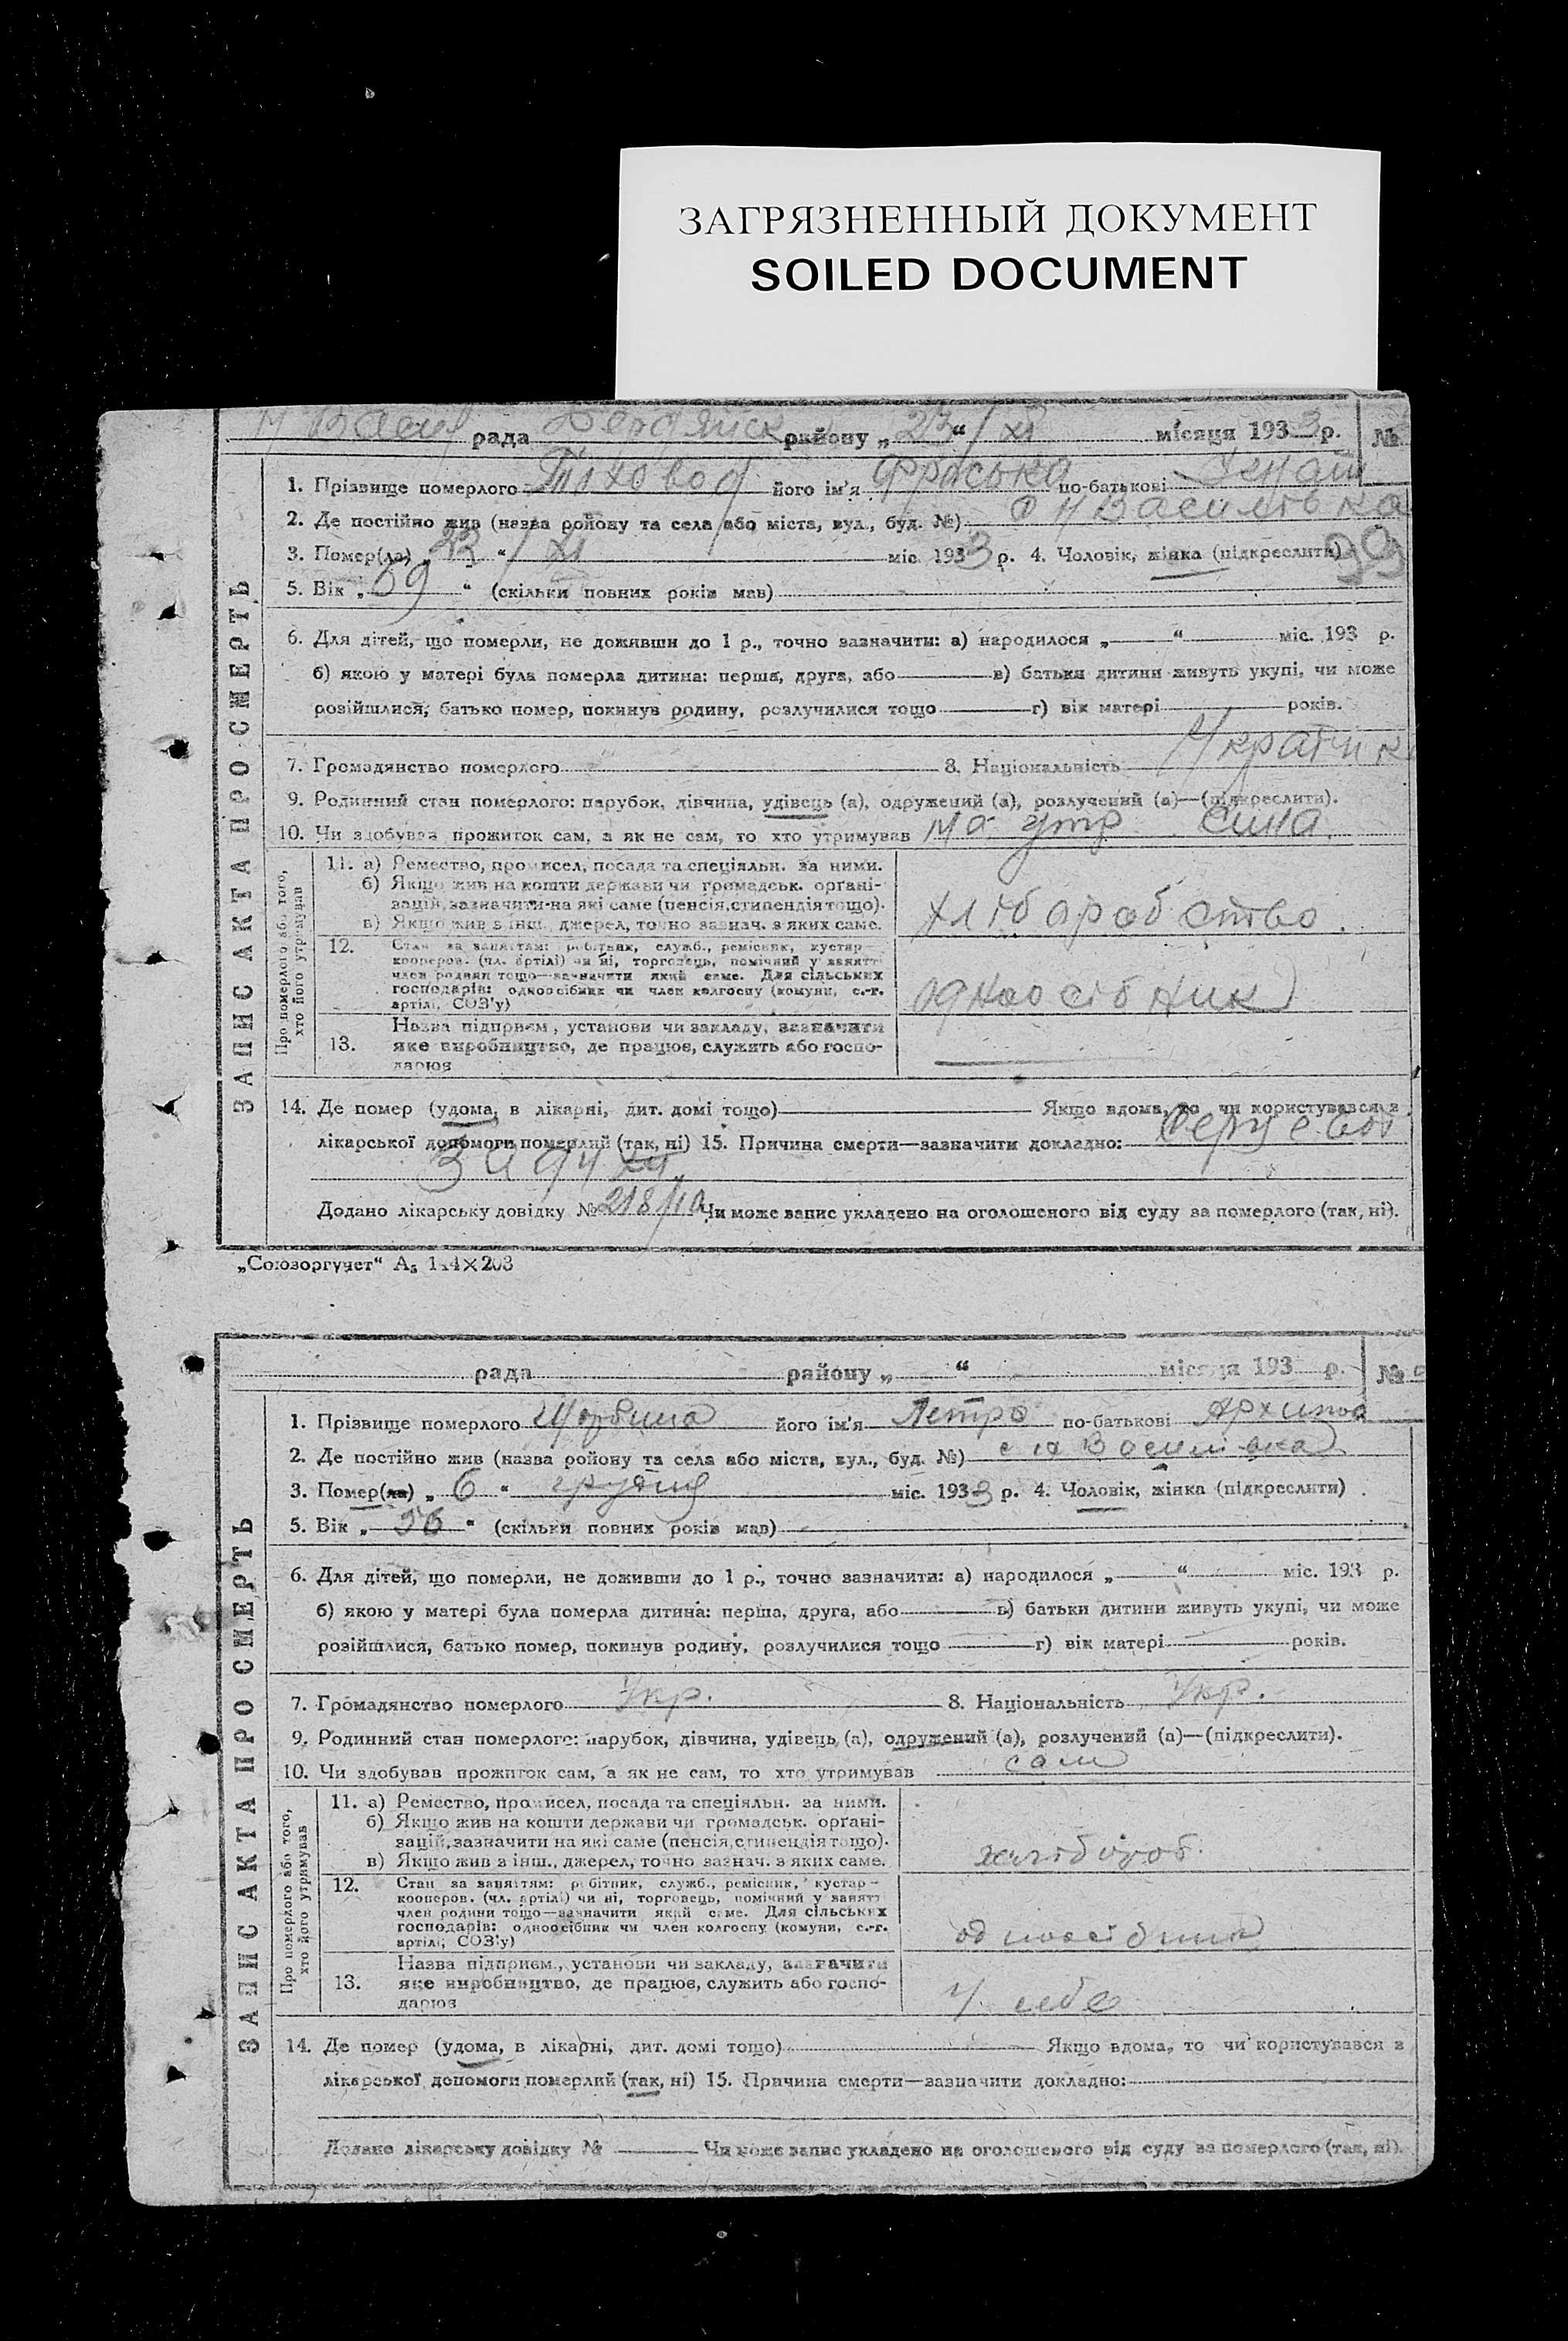 ЗАГРЯЗНЕННЫЙ ДОКУМЕНТ
SOILED DOCUMENT
рада району „23“ / XI місяця 1933 р. №
ЗАПИС АКТА ПРО СМЕРТЬ
1. Прізвище померлого його ім'я Фроська по-батькові
2. Де постійно жив (назва ройону та села або міста, вул., буд. №)
3. Помер(ла) „23“ / XI міс. 1933 р. 4. Чоловік, жінка (підкреслити)
5. Вік „69“ (скільки повних років мав)
6. Для дітей, що померли, не доживши до 1 р., точно зазначити: а) народилося „ “ міс. 193 р.
б) якою у матері була померла дитина: перша, друга, або в) батьки дитини живуть укупі, чи може
розійшлися, батько помер, покинув родину, розлучилися тощо г) вік матері років.
7. Громадянство померлого 8. Національність Украінк
9. Родинний стан померлого: парубок, дівчина, удівець (а), одружений (а), розлучений (а)—(підкреслити).
10. Чи здобував прожиток сам, а як не сам, то хто утримував на утр сина.
Про померлого або того, хто його утримував
11. а) Ремество, промисел, посада та спеціяльн. за ними.
б) Якщо жив на кошти держави чи громадськ. органі-
зацій, зазначити на які саме (пенсія, стипендія тощо).
в) Якщо жив з інш. джерел, точно зазнач. з яких саме.
хліборобство.
12. Стан за заняттям: робітник, служб., ремісник, кустар-
кооперов. (чл. артілі) чи ні, торговець, помічний у занятт
член родини тощо—зазначити який саме. Для сільських
господарів: одноосібник чи член колгоспу (комуни, с.-г.
артілі, СОЗ'у)
одноосібник
13. Назва підприєм., установи чи закладу, зазначити
яке виробництво, де працює, служить або госпо-
дарює
14. Де помер (удома, в лікарні, дит. домі тощо) Якщо вдома, то чи користувався з
лікарської допомоги померлий (так, ні) 15. Причина смерти—зазначити докладно:
Додано лікарську довідку № 218 Чи може запис укладено на оголошеного від суду за померлого (так, ні).
„Союзоргучет“ А₅ 144×203
рада району „ “ місяця 193 р. №
ЗАПИС АКТА ПРО СМЕРТЬ
1. Прізвище померлого Щербина його ім'я Петро по-батькові Архипов
2. Де постійно жив (назва ройону та села або міста, вул., буд. №)
3. Помер(ла) „6“ грудня міс. 1933 р. 4. Чоловік, жінка (підкреслити)
5. Вік „56“ (скільки повних років мав)
6. Для дітей, що померли, не доживши до 1 р., точно зазначити: а) народилося „ “ міс. 193 р.
б) якою у матері була померла дитина: перша, друга, або в) батьки дитини живуть укупі, чи може
розійшлися, батько помер, покинув родину, розлучилися тощо г) вік матері років.
7. Громадянство померлого Укр. 8. Національність Укр.
9. Родинний стан померлого: парубок, дівчина, удівець (а), одружений (а), розлучений (а)—(підкреслити).
10. Чи здобував прожиток сам, а як не сам, то хто утримував сам
Про померлого або того, хто його утримував
11. а) Ремество, промисел, посада та спеціяльн. за ними.
б) Якщо жив на кошти держави чи громадськ. органі-
зацій, зазначити на які саме (пенсія, стипендія тощо).
в) Якщо жив з інш., джерел, точно зазнач. з яких саме.
хлібороб.
12. Стан за заняттям: робітник, служб., ремісник, кустар-
кооперов. (чл. артілі) чи ні, торговець, помічний у занятт
член родини тощо—зазначити який саме. Для сільських
господарів: одноосібник чи член колгоспу (комуни, с.-г.
артілі, СОЗ'у)
одноосібник
13. Назва підприєм., установи чи закладу, зазначити
яке виробництво, де працює, служить або госпо-
дарює
У себе
14. Де помер (удома, в лікарні, дит. домі тощо) Якщо вдома, то чи користувався з
лікарської допомоги померлий (так, ні) 15. Причина смерти—зазначити докладно:
Додано лікарську довідку № Чи може запис укладено на оголошеного від суду за померлого (так, ні).